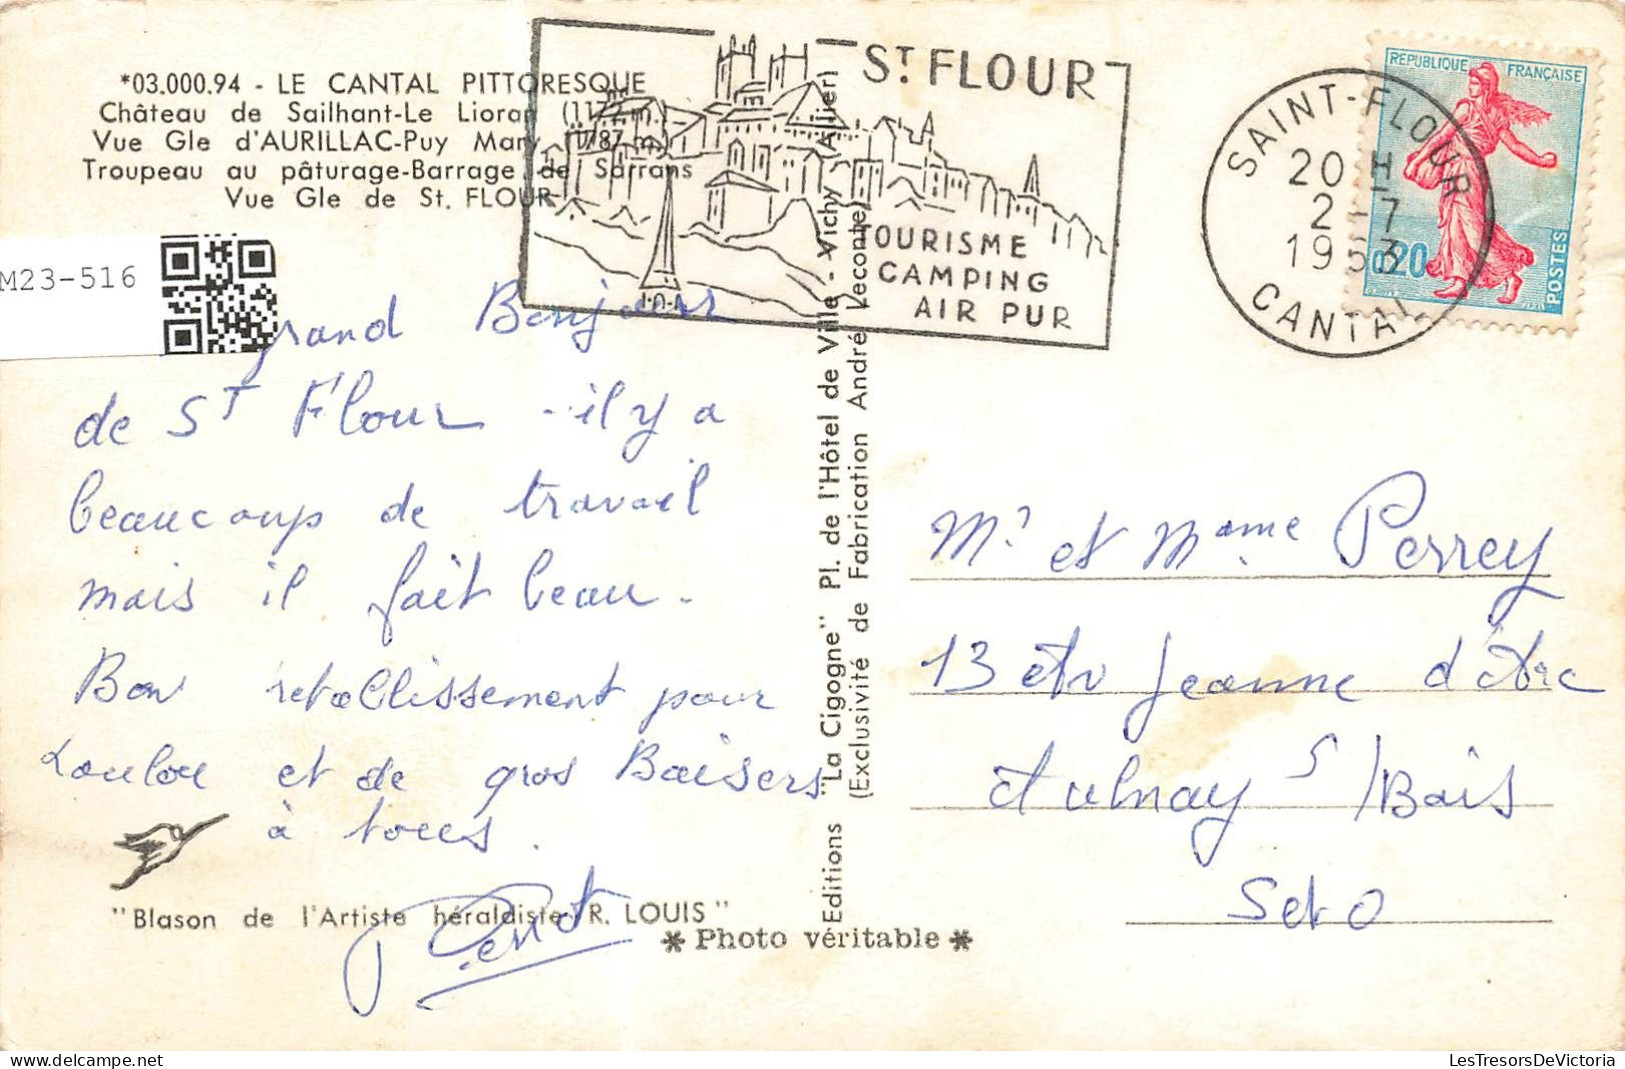 *03.000.94 - LE CANTAL PITTORESQUE
Château de Sailhant-Le Lioran
Vue Gle d'AURILLAC-Puy Mary (1787 m.)
Troupeau au pâturage-Barrage de Sarrans
Vue Gle de St. FLOUR
M23-516
ST FLOUR
TOURISME
CAMPING
AIR PUR
SAINT-FLOUR
20 H
2-7
1963
CANTAL
REPUBLIQUE FRANÇAISE
0,20
POSTES
grand Bonjour
de St Flour - il y a
beaucoup de travail
mais il fait beau.
Bon retablissement pour
Loulou et de gros Baisers
à tous.
"Blason de l'Artiste héraldiste R. LOUIS"
* Photo véritable *
Editions "La Cigogne" Pl. de l'Hôtel de Ville - Vichy (Allier)
(Exclusivité de Fabrication André Leconte)
Mr et Mame Perrey
13 Av Jeanne d'Arc
Aulnay s/Bois
Set O
LesTresorsDeVictoria